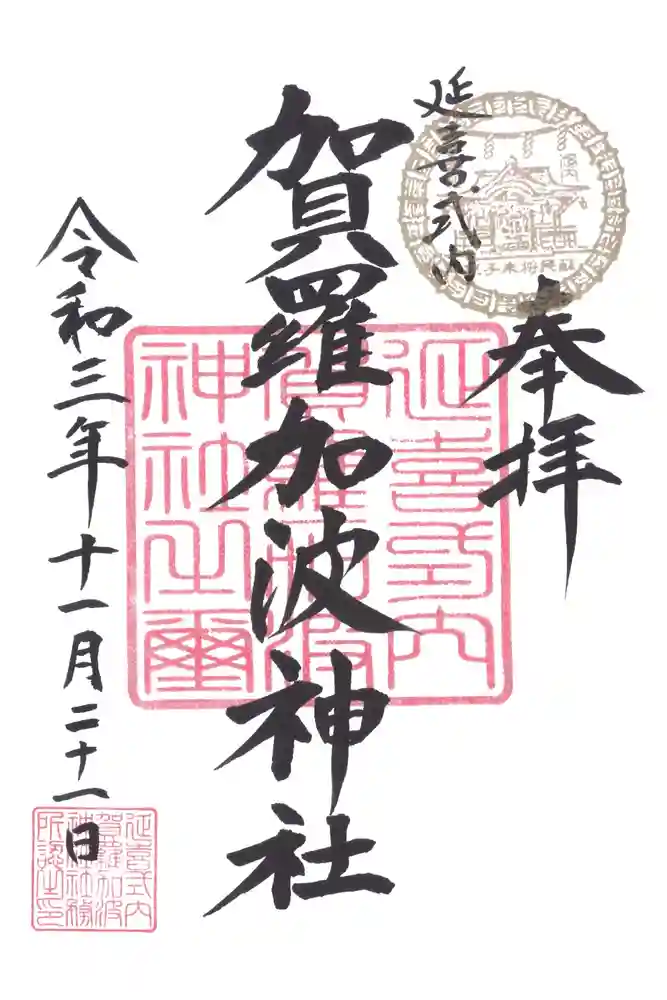 延喜式内
奉拝
賀羅加波神社
令和三年十一月二十一日
延喜式内
賀羅加波
神社之璽
延喜式内
賀羅加波
神社務
所認之印
蘇民将来子孫